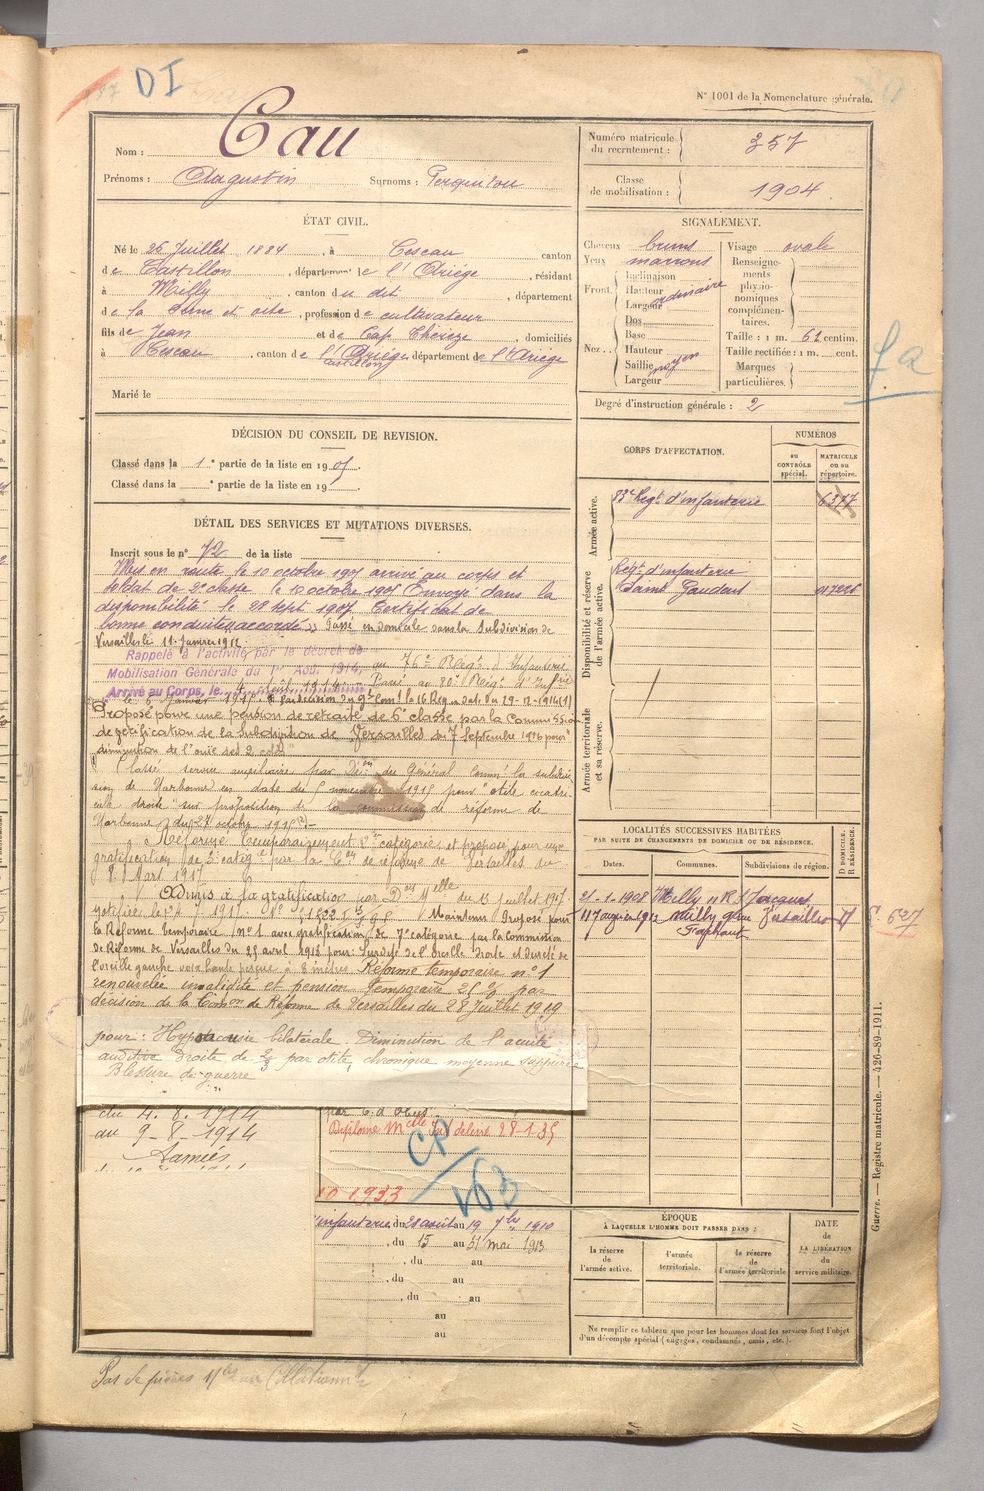 DI
N° 1001 de la Nomenclature générale.
Nom : Cau
Prénoms : Augustin Surnoms :
Numéro matricule du recrutement : 357
Classe de mobilisation : 1904
ÉTAT CIVIL.
Né le 25 Juillet 1884, à Cescau canton
de Castillon, département de l'Ariége, résidant
à Milly, canton du dit, département
de la Seine et Oise, profession de cultivateur
fils de Jean et de Cap Thérèze, domiciliés
à Cescau, canton de l'Ariége département de l'Ariége
Castillon
Marié le
SIGNALEMENT.
Cheveux bruns
Yeux marrons
Front. Inclinaison
Hauteur
Largeur ordinaire
Nez. Dos
Base
Hauteur
Saillie moyen
Largeur
Visage ovale
Renseignements physionomiques complémentaires.
Taille : 1 m. 61 centim.
Taille rectifiée : 1 m. cent.
Marques particulières.
Degré d'instruction générale : 2
DÉCISION DU CONSEIL DE REVISION.
Classé dans la 1e partie de la liste en 1905.
Classé dans la e partie de la liste en 19
CORPS D'AFFECTATION.
NUMÉROS
au CONTRÔLE spécial.
MATRICULE ou au répertoire.
Armée active.
83e Régt d'infanterie 6377
Disponibilité et réserve de l'armée active.
Régt d'infanterie
Saint Gaudens
Armée territoriale et sa réserve.
DÉTAIL DES SERVICES ET MUTATIONS DIVERSES.
Inscrit sous le n° 72 de la liste
Mis en route le 10 octobre 1905 arrivé au corps et
soldat de 2e classe le 10 octobre 1905 Envoyé dans la
disponibilité le 28 sept 1907 Certificat de
bonne conduite "accordé" Passé en domicile dans la Subdivision de
Versailles le 11 Janvier 1912
Rappelé à l'activité par le décret de
Mobilisation Générale du 1er Août 1914, au 76e Rég. d'Infanterie
Arrivé au Corps, le 4 août 1914 Passé au 80e Rég. d'Infrie
le 6 Janvier 1915, par décision du Gal Comt la 16 Rég en date du 29-12-1914 (1)
Proposé pour une pension de retraite de 6e classe par la Commission
de gratification de la Subdivision de Versailles du 7 Septembre 1916 pour
diminution de l'ouïe des 2 côtés"
(1) Classé service auxiliaire par Déon du Général Commt la subdivi
sion de Narbonne en date du 5 novembre 1915 pour "otite cicatri
cielle droite" sur proposition de la commission de réforme de
Narbonne du 27 octobre 1915
Réformé temporairement 2e catégorie et proposé pour une
gratification de 5e catégie par la Con de réforme de Versailles du
8 Mars 1917
Admis à la gratification par Don Mielle du 13 juillet 1917
notifiée le 24.7.1917. Maintenu Proposé pour
la Réforme temporaire n°1 avec gratification de 7e catégorie par la Commission
de Réforme de Versailles du 25 avril 1918 pour surdité de l'oreille droite et dureté de
l'oreille gauche voix haute perçue à 8 mètres. Réforme temporaire n°1
renouvelée invalidité et pension temporaire 25 % par
décision de la Comon de Réforme de Versailles du 28 Juillet 1919
pour : Hypoacousie bilatérale. Diminution de l'acuité
auditive droite de 2/3 par otite, chronique moyenne suppurée
Blessure de guerre
du 4. 8. 1914
au 9-8-1914
Armées
par E. d'obus.
Diplôme Melle délivré 28-1-35
CP
163
10 1933
LOCALITÉS SUCCESSIVES HABITÉES
PAR SUITE DE CHANGEMENTS DE DOMICILE OU DE RÉSIDENCE.
Dates. Communes. Subdivisions de région. D DOMICILE. R RÉSIDENCE.
21-1-1908 Milly
11 Janvier 1912 Milly Versailles
infanterie du 28 août au 19 7bre 1910
, du 15 au 31 mai 1913
, du au
, du au
, du au
au
au
ÉPOQUE
À LAQUELLE L'HOMME DOIT PASSER DANS :
la réserve de l'armée active.
l'armée territoriale.
la réserve de l'armée territoriale
DATE de LA LIBÉRATION du service militaire.
Ne remplir ce tableau que pour les hommes dont les services font l'objet
d'un décompte spécial (engagés, condamnés, omis, etc.).
Guerre. — Registre matricule. — 426-89-1911.